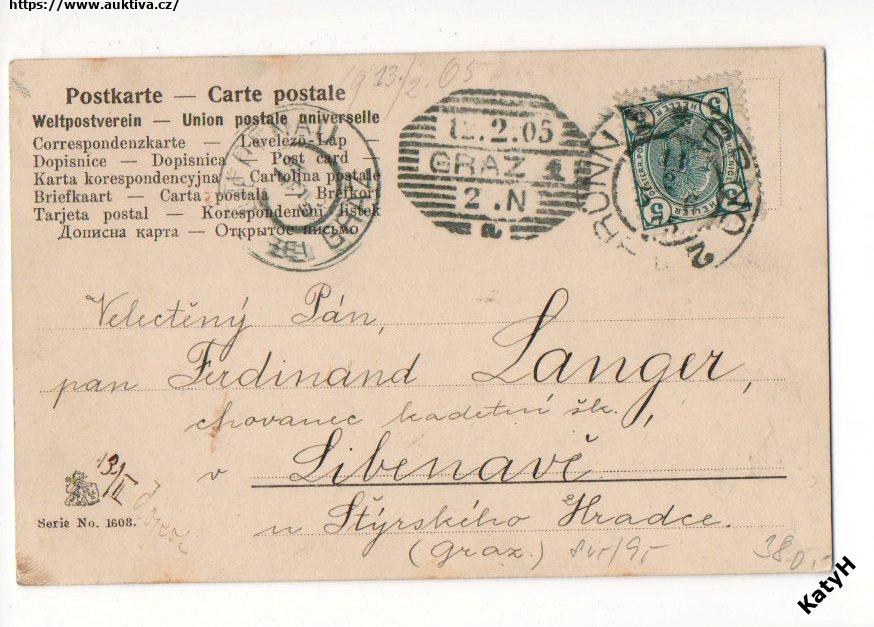 https://www.auktiva.cz/
1913./2.05
Postkarte — Carte postale
Weltpostverein — Union postale universelle
Correspondenzkarte — Levelező-Lap —
Dopisnice — Dopisnica — Post card —
Karta korespondencyjna — Cartolina postale
Briefkaart — Carta postala — Brefkort
Tarjeta postal — Korespondenční lístek
Дописна карта — Открытое письмо
LIEBENAU
BEI GRAZ
12.2.05
GRAZ 1
2.N
BRÜNN
BRNO 2
5 HELLER 5
5 HELLER
Velectěný Pán,
pan Ferdinand Langer,
chovanec kadetní šk.,
v Libenavě
u Štýrského Hradce.
(Graz.)
13/II
Serie No. 1608.
380,-
KatyH